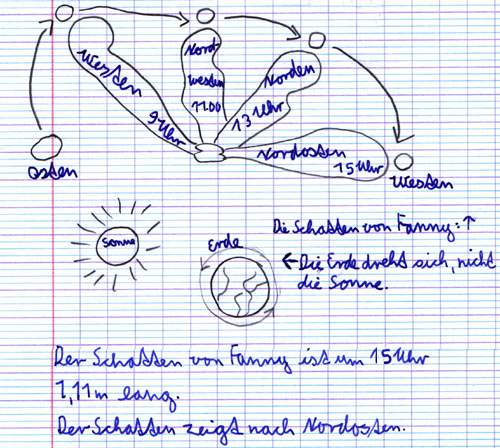 Westen
9 Uhr
Nord
westen
11.00
Norden
13 Uhr
Nordosten
15 Uhr
Osten
Westen
Sonne
Erde
Die Schatten von Fanny: ↑
← Die Erde dreht sich, nicht
die Sonne.
Der Schatten von Fanny ist um 15 Uhr
1,11 m lang.
Der Schatten zeigt nach Nordosten.